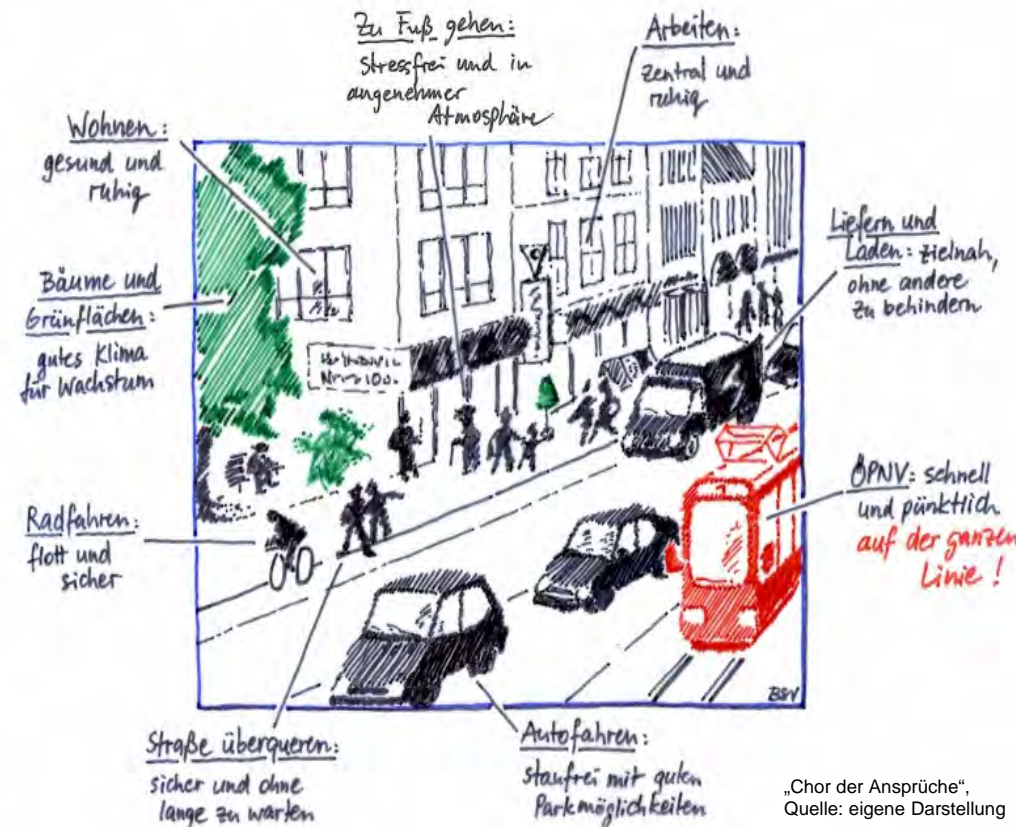 Zu Fuß gehen:
stressfrei und in
angenehmer
Atmosphäre
Arbeiten:
zentral und
ruhig
Wohnen:
gesund und
ruhig
Liefern und
Laden: zielnah,
ohne andere
zu behindern
Bäume und
Grünflächen:
gutes Klima
für Wachstum
ÖPNV: schnell
und pünktlich
auf der ganzen
Linie !
Radfahren:
flott und
sicher
Straße überqueren:
sicher und ohne
lange zu warten
Autofahren:
staufrei mit guten
Parkmöglichkeiten
BSV
„Chor der Ansprüche“,
Quelle: eigene Darstellung